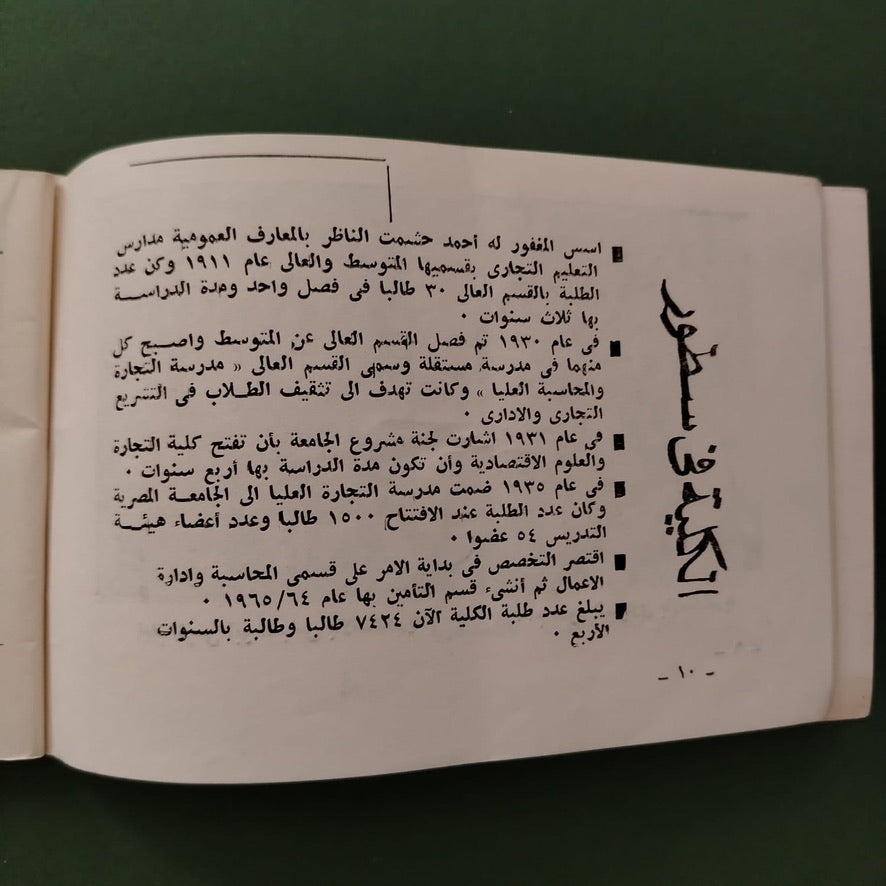 الكلية في سطور
اسس المغفور له أحمد حشمت الناظر بالمعارف العمومية مدارس
التعليم التجارى بقسميها المتوسط والعالى عام ١٩١١ وكن عدد
الطلبة بالقسم العالى ٣٠ طالبا فى فصل واحد ومدة الدراسـة
بها ثلاث سنوات ٠
فى عام ١٩٣٠ تم فصل القسم العالى عن المتوسط واصبح كل
منهما فى مدرسة مستقلة وسمى القسم العالى « مدرسة التجارة
والمحاسبة العليا » وكانت تهدف الى تثقيف الطـلاب فى التشريع
التجارى والادارى ٠
فى عام ١٩٣١ اشارت لجنة مشروع الجامعة بأن تفتح كلية التجارة
والعلوم الاقتصادية وأن تكون مدة الدراسة بها أربع سنوات ٠
فى عام ١٩٣٥ ضمت مدرسة التجارة العليا الى الجامعـة المصرية
وكان عدد الطلبة عند الافتتاح ١٥٠٠ طالبا وعدد أعضاء هيئـة
التدريس ٥٤ عضوا ٠
اقتصر التخصص فى بداية الامر على قسمى المحاسبة وادارة
الاعمال ثم أنشىء قسم التأمين بها عام ١٩٦٥/٦٤ ٠
يبلغ عدد طلبة الكلية الآن ٧٤٢٤ طالبا وطالبة بالسنوات
الأربع ٠
- ١٠ -